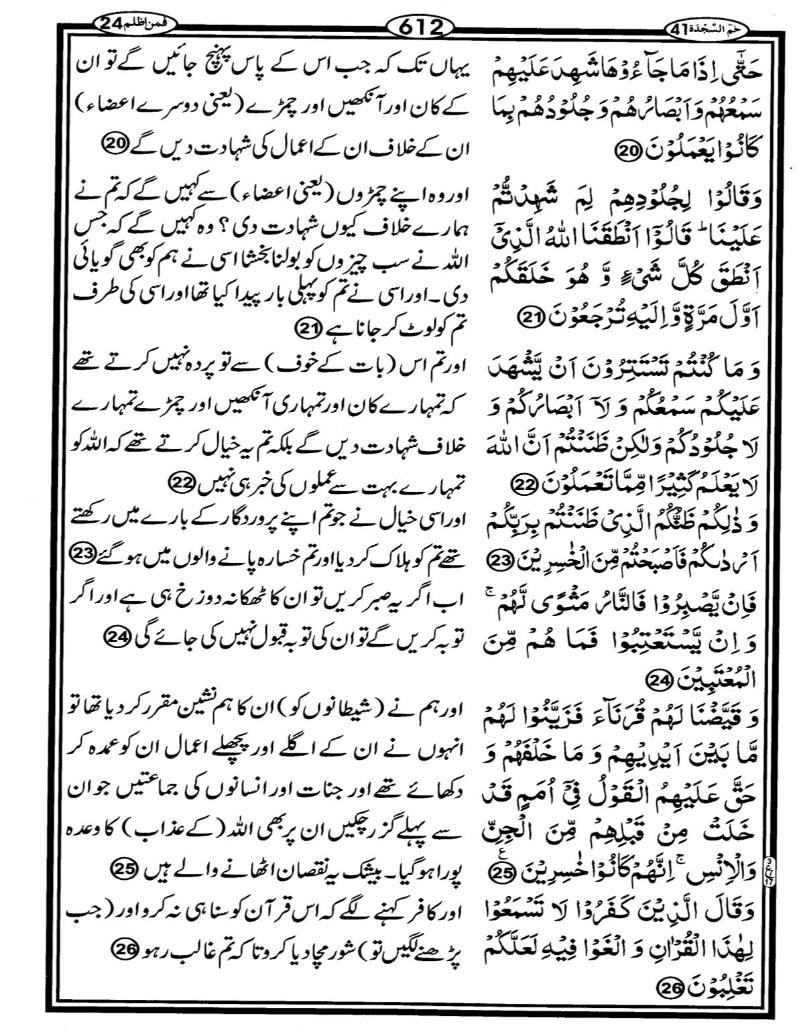 حٰمٓ السَّجْدَة 41
612
فمن اظلم 24
حَتّٰۤى اِذَا مَا جَآءُوْهَا شَهِدَ عَلَيْهِمْ
سَمْعُهُمْ وَ اَبْصَارُهُمْ وَ جُلُوْدُهُمْ بِمَا
كَانُوْا يَعْمَلُوْنَ 20
وَقَالُوْا لِجُلُوْدِهِمْ لِمَ شَهِدْتُّمْ
عَلَيْنَا ؕ قَالُوْۤا اَنْطَقَنَا اللّٰهُ الَّذِيْۤ
اَنْطَقَ كُلَّ شَيْءٍ وَّ هُوَ خَلَقَكُمْ
اَوَّلَ مَرَّةٍ وَّ اِلَيْهِ تُرْجَعُوْنَ 21
وَ مَا كُنْتُمْ تَسْتَتِرُوْنَ اَنْ يَّشْهَدَ
عَلَيْكُمْ سَمْعُكُمْ وَ لَاۤ اَبْصَارُكُمْ وَ
لَا جُلُوْدُكُمْ وَلٰكِنْ ظَنَنْتُمْ اَنَّ اللّٰهَ
لَا يَعْلَمُ كَثِيْرًا مِّمَّا تَعْمَلُوْنَ 22
وَ ذٰلِكُمْ ظَنُّكُمُ الَّذِيْ ظَنَنْتُمْ بِرَبِّكُمْ
اَرْدٰىكُمْ فَاَصْبَحْتُمْ مِّنَ الْخٰسِرِيْنَ 23
فَاِنْ يَّصْبِرُوْا فَالنَّارُ مَثْوًى لَّهُمْ ۚ
وَ اِنْ يَّسْتَعْتِبُوْا فَمَا هُمْ مِّنَ
الْمُعْتَبِيْنَ 24
وَ قَيَّضْنَا لَهُمْ قُرَنَآءَ فَزَيَّنُوْا لَهُمْ
مَّا بَيْنَ اَيْدِيْهِمْ وَ مَا خَلْفَهُمْ وَ
حَقَّ عَلَيْهِمُ الْقَوْلُ فِيْۤ اُمَمٍ قَدْ
خَلَتْ مِنْ قَبْلِهِمْ مِّنَ الْجِنِّ
وَالْاِنْسِ ۚ اِنَّهُمْ كَانُوْا خٰسِرِيْنَ ع 25
وَقَالَ الَّذِيْنَ كَفَرُوْا لَا تَسْمَعُوْا
لِهٰذَا الْقُرْاٰنِ وَ الْغَوْا فِيْهِ لَعَلَّكُمْ
تَغْلِبُوْنَ 26
یہاں تک کہ جب اس کے پاس پہنچ جائیں گے تو ان
کے کان اور آنکھیں اور چمڑے (یعنی دوسرے اعضاء)
ان کے خلاف ان کے اعمال کی شہادت دیں گے 20
اور وہ اپنے چمڑوں (یعنی اعضاء) سے کہیں گے کہ تم نے
ہمارے خلاف کیوں شہادت دی؟ وہ کہیں گے کہ جس
اللہ نے سب چیزوں کو بولنا بخشا اسی نے ہم کو بھی گویائی
دی۔ اور اسی نے تم کو پہلی بار پیدا کیا تھا اور اسی کی طرف
تم کو لوٹ کر جانا ہے 21
اور تم اس (بات کے خوف) سے تو پردہ نہیں کرتے تھے
کہ تمہارے کان اور تمہاری آنکھیں اور چمڑے تمہارے
خلاف شہادت دیں گے بلکہ تم یہ خیال کرتے تھے کہ اللہ کو
تمہارے بہت سے عملوں کی خبر ہی نہیں 22
اور اسی خیال نے جو تم اپنے پروردگار کے بارے میں رکھتے
تھے تم کو ہلاک کر دیا اور تم خسارہ پانے والوں میں ہو گئے 23
اب اگر یہ صبر کریں تو ان کا ٹھکانہ دوزخ ہی ہے اور اگر
توبہ کریں گے تو ان کی توبہ قبول نہیں کی جائے گی 24
اور ہم نے (شیطانوں کو) ان کا ہم نشین مقرر کر دیا تھا تو
انہوں نے ان کے اگلے اور پچھلے اعمال ان کو عمدہ کر
دکھائے تھے اور جنات اور انسانوں کی جماعتیں جو ان
سے پہلے گزر چکیں ان پر بھی اللہ (کے عذاب) کا وعدہ
پورا ہو گیا۔ بیشک یہ نقصان اٹھانے والے ہیں 25
اور کافر کہنے لگے کہ اس قرآن کو سنا ہی نہ کرو اور (جب
پڑھنے لگیں تو) شور مچا دیا کرو تا کہ تم غالب رہو 26